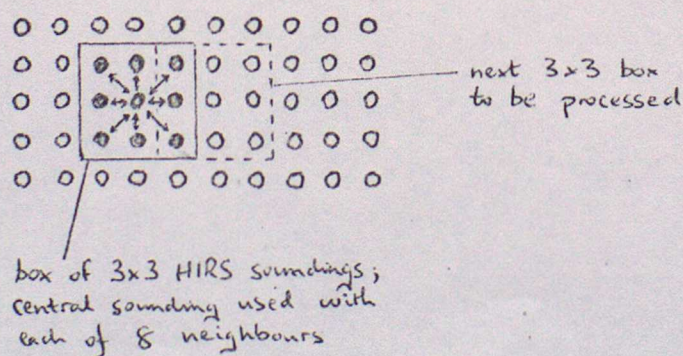 next 3x3 box
to be processed
box of 3x3 HIRS soundings;
central sounding used with
each of 8 neighbours